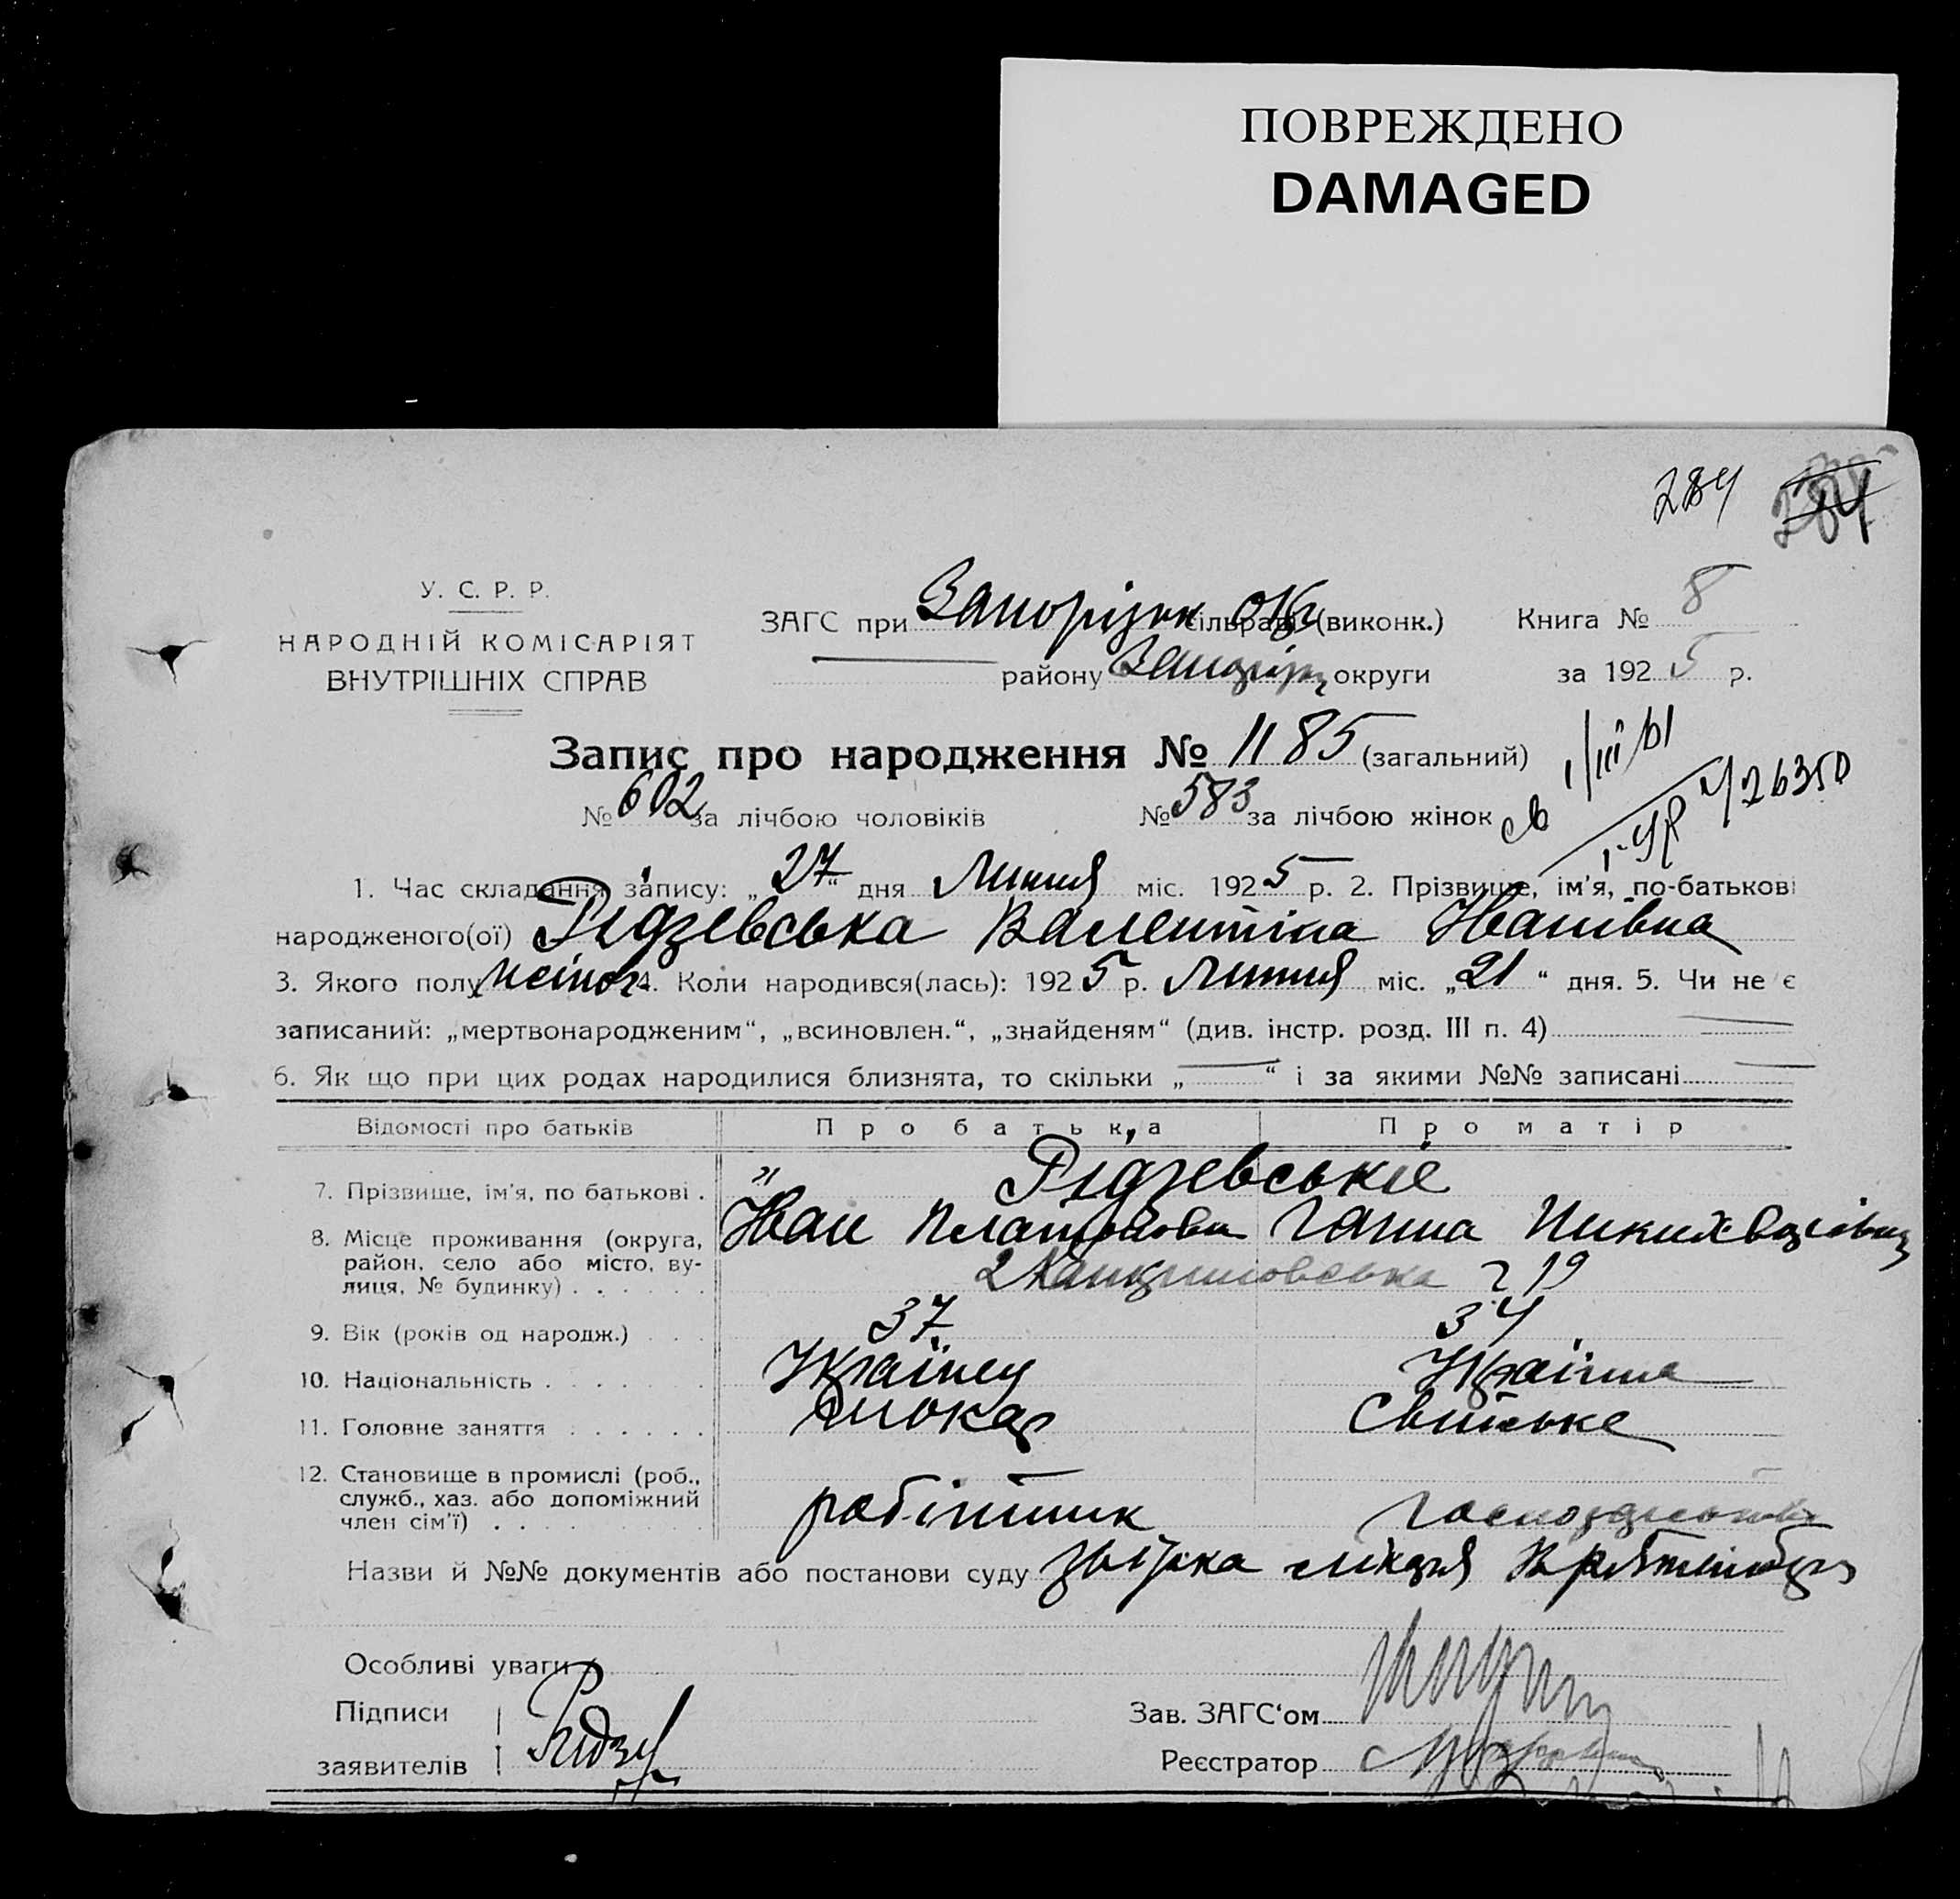 ПОВРЕЖДЕНО
DAMAGED
284 284
У. С. Р. Р.
НАРОДНІЙ КОМІСАРІЯТ
ВНУТРІШНІХ СПРАВ
ЗАГС при Запорізьк сільраді (виконк.) Книга № 8
району Запоріз округи за 1925 р.
Запис про народження № 1185 (загальний)
№ 602 за лічбою чоловіків № 583 за лічбою жінок
1/III 61
26350
1. Час складання запису: „27“ дня Липня міс. 1925 р. 2. Прізвище, ім'я, по-батькові
народженого(ої) Рідзевська Валентіна Іванівна
3. Якого полу жіноч. 4. Коли народився(лась): 1925 р. Липня міс. „21“ дня. 5. Чи не є
записаний: „мертвонародженим“, „всиновлен.“, „знайденям“ (див. інстр. розд. III п. 4)
6. Як що при цих родах народилися близнята, то скільки „—“ і за якими №№ записані —
Відомості про батьків Про батька Про матір
7. Прізвище, ім'я, по батькові . Рідзевські
Іван Платонови Ганна
8. Місце проживання (округа,
район, село або місто, ву-
лиця, № будинку) . . . . . . 19
9. Вік (років од народж.) . . . 37 34
10. Національність . . . . . . . Українец Українка
11. Головне заняття . . . . . . Слюсар Свійське
12. Становище в промислі (роб.,
служб., хаз. або допоміжний
член сім'ї) . . . . . . . . . робітник господарство
Назви й №№ документів або постанови суду
Особливі уваги
Підписи
заявителів Ридз
Зав. ЗАГС'ом
Реєстратор